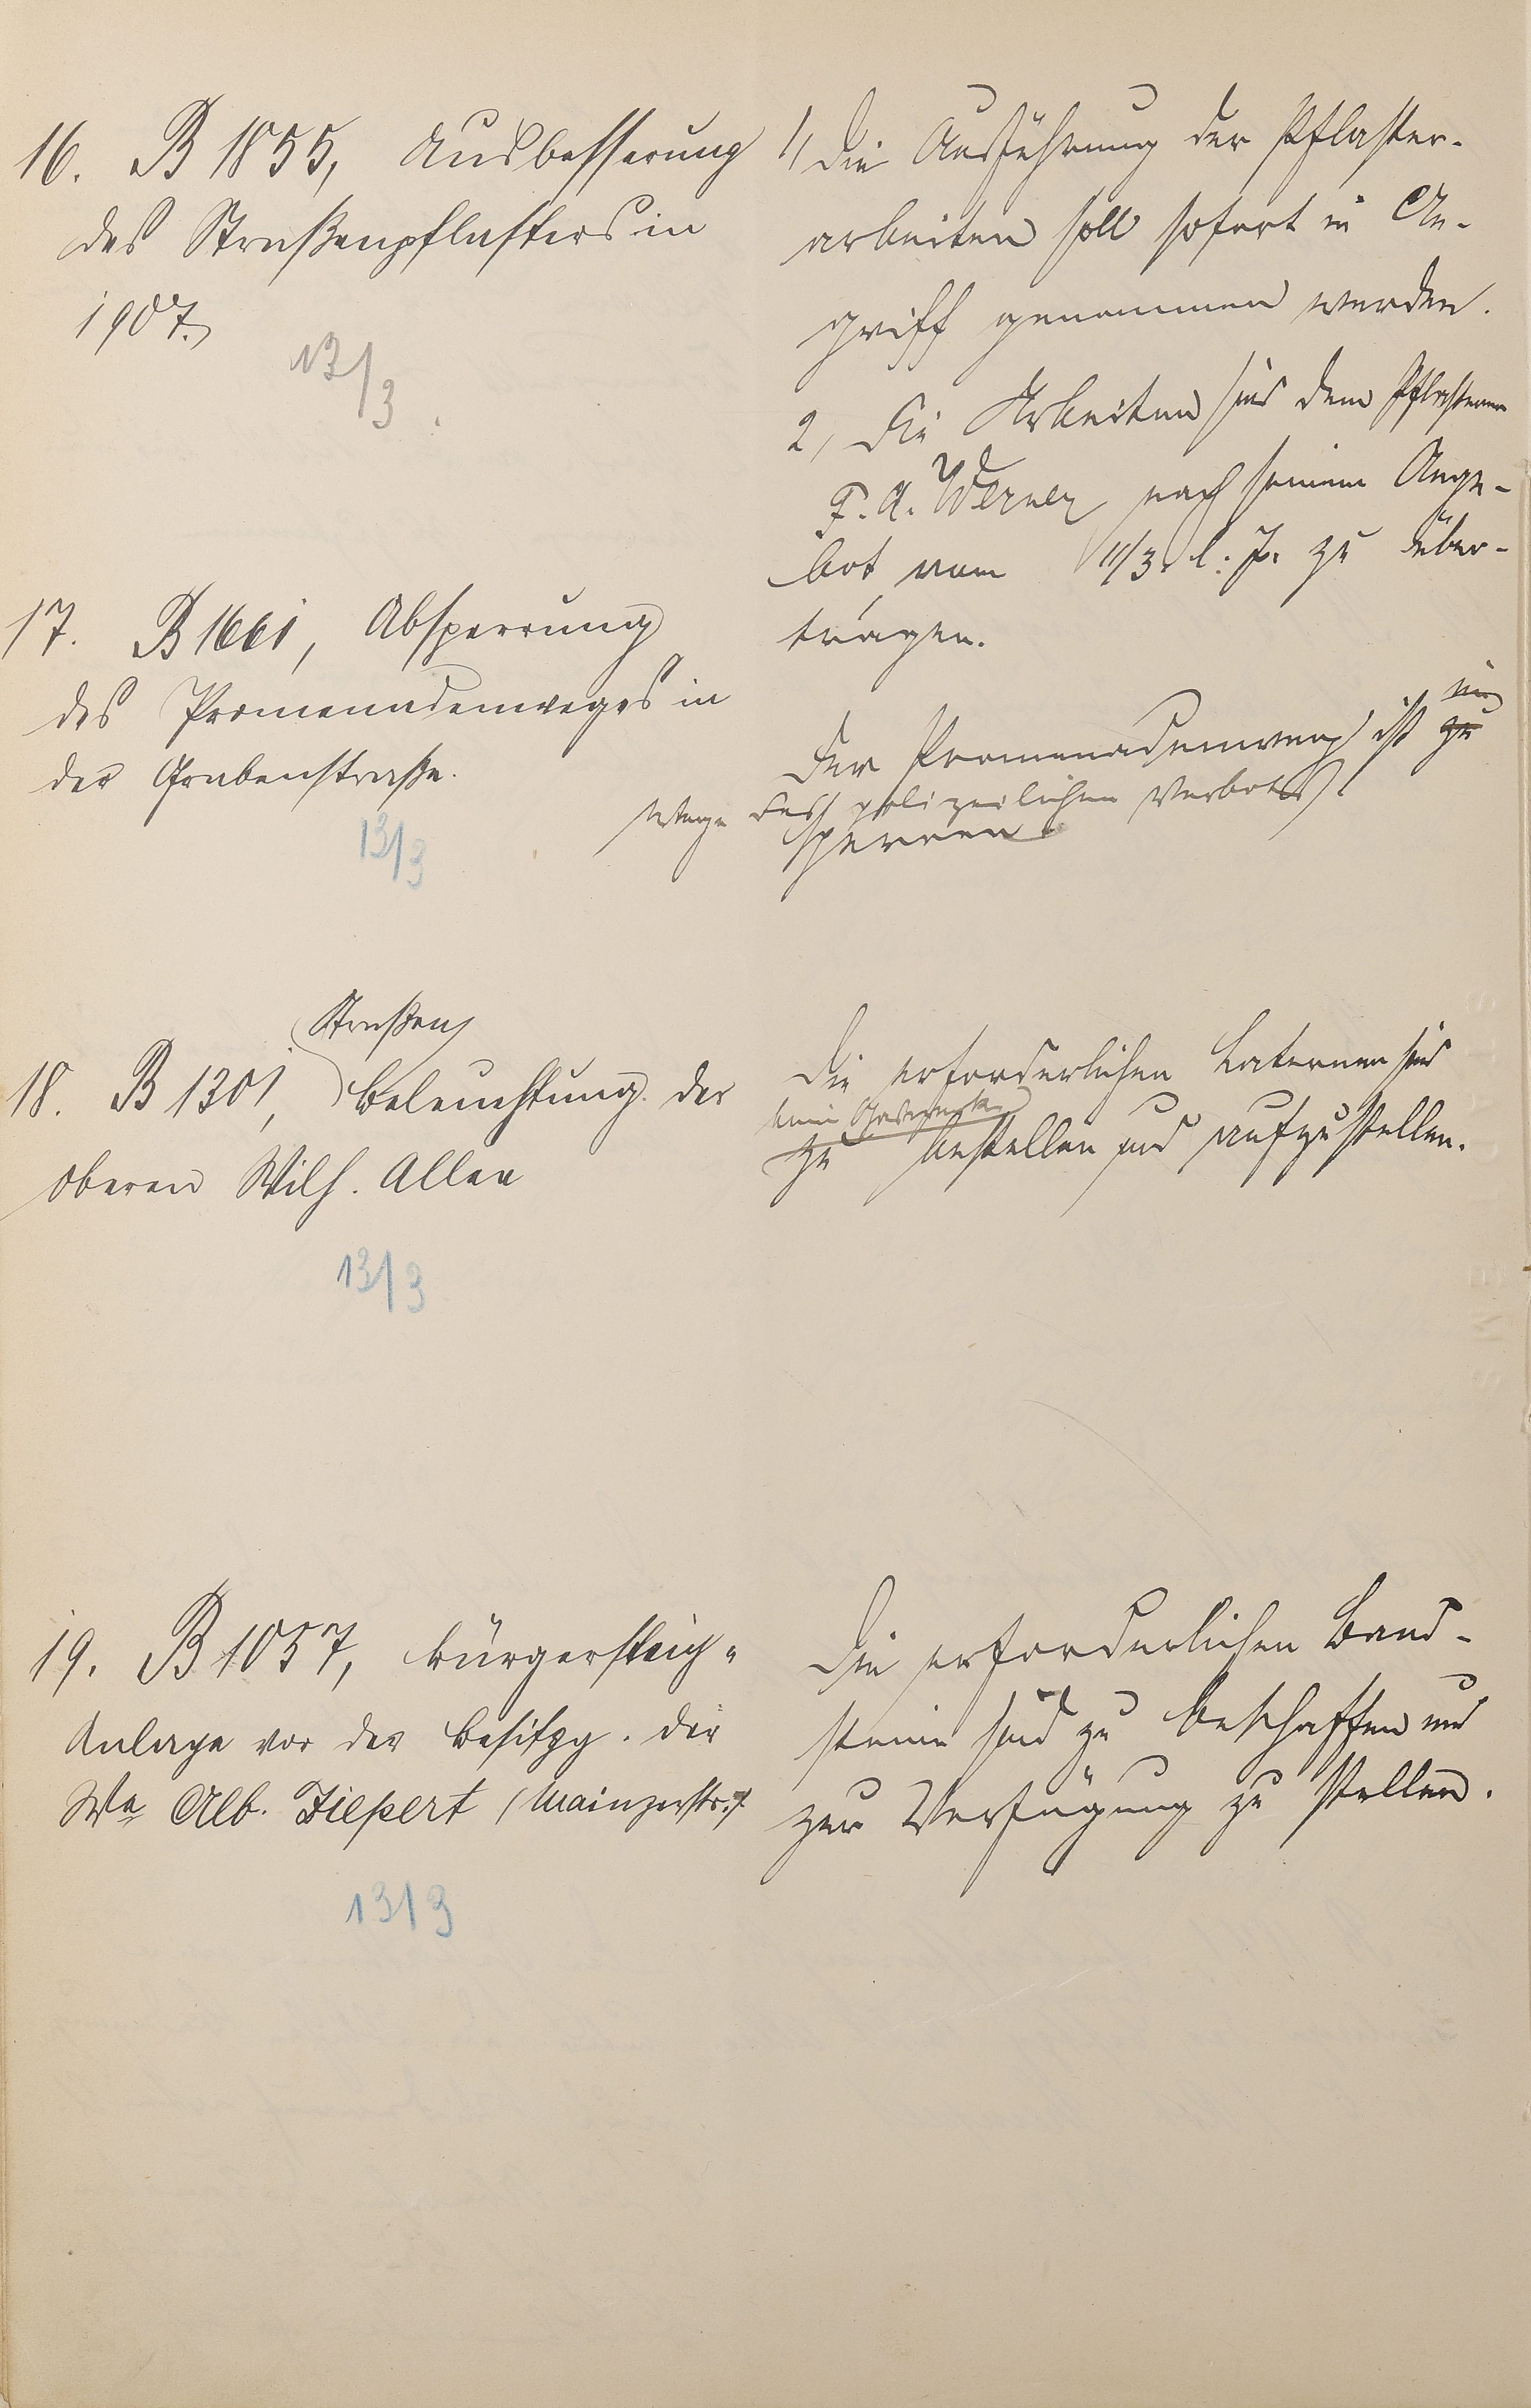 16. B 1855, Ausbesserung
des Straßenpflasters in
1907.
13/3.
1, Die Ausführung der Pflaster-
arbeiten soll sofort in An-
griff genommen werden.
2, Die Arbeiten sind dem Pflasterer
F. A. Werner nach seinem Ange-
bot vom 11/3. l. J. zu über-
tragen.
17. B 1661, Absperrung
des Promenadenweges in
der Grabenstraße.
13/3
im
Der Promenadenweg ist zu
Wege des polizeilichen Verbotes
sperren.
Straßen
18. B 1301, beleuchtung der
oberen Wilh. Allee
13/3
Die erforderlichen Laternen sind
beim Gaswerk
zu bestellen und aufzustellen.
19. B 1057, Bürgersteig-
Anlage vor der Besitzg. der
We Alb. Ziepert (Mainzerstr.)
13/3
Die erforderlichen Band-
steine sind zu beschaffen und
zur Verfügung zu stellen.